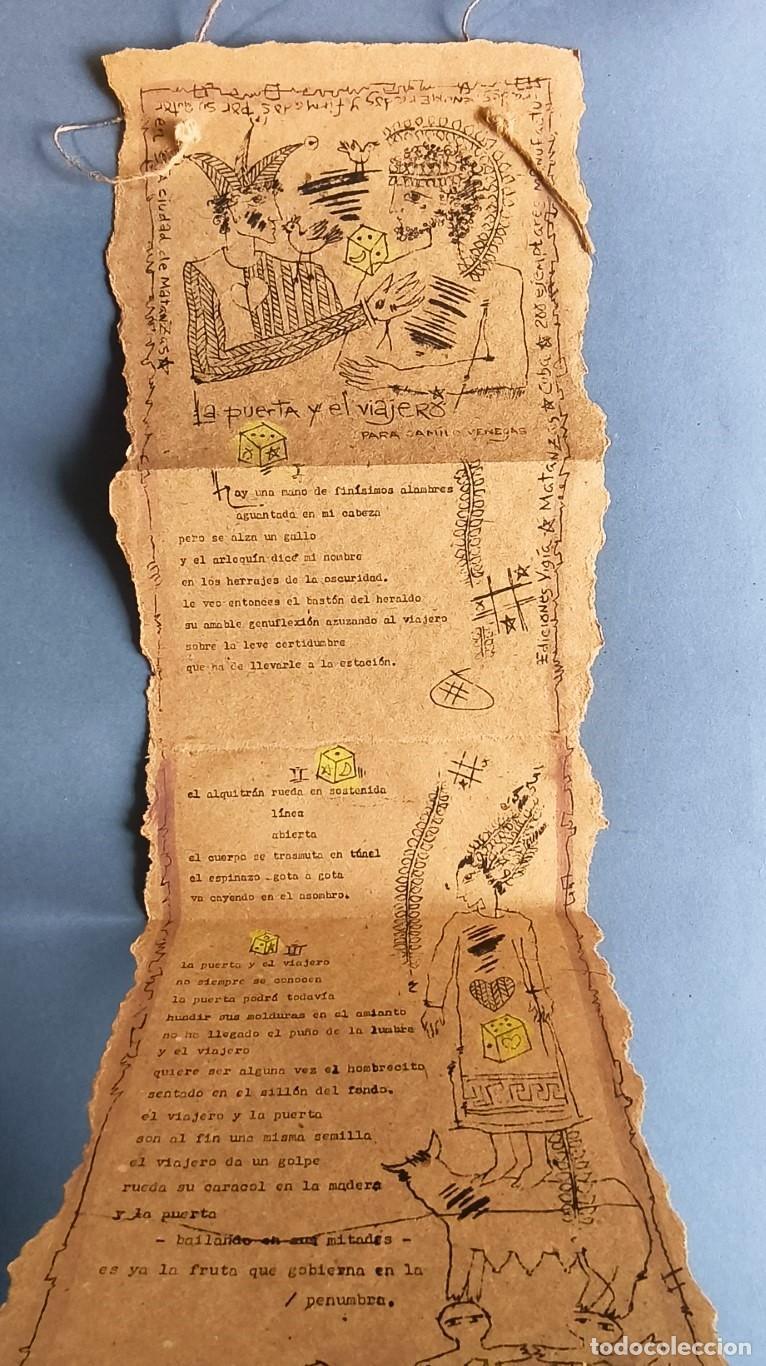 en la ciudad de Matanzas
enumerados y firmados por su autor
Ediciones Vigía ☆ Matanzas ☆ Cuba ☆ 200 ejemplares manufactu
La puerta y el viajero
PARA CAMILO VENEGAS
I
Hay una mano de finísimos alambres
aguantada en mi cabeza
pero se alza un gallo
y el arlequín dice mi nombre
en los herrajes de la oscuridad.
le veo entonces el bastón del heraldo
su amable genuflexión azuzando al viajero
sobre la leve certidumbre
que ha de llevarle a la estación.
II
el alquitrán rueda en sostenida
línea
abierta
el cuerpo se trasmuta en túnel
el espinazo gota a gota
va cayendo en el asombro.
III
la puerta y el viajero
no siempre se conocen
la puerta podrá todavía
hundir sus molduras en el amianto
no ha llegado el puño de la lumbre
y el viajero
quiere ser alguna vez el hombrecito
sentado en el sillón del fondo.
el viajero y la puerta
son al fin una misma semilla
el viajero da un golpe
rueda su caracol en la madera
y la puerta
- bailando en sus mitades -
es ya la fruta que gobierna en la
/ penumbra.
todocoleccion